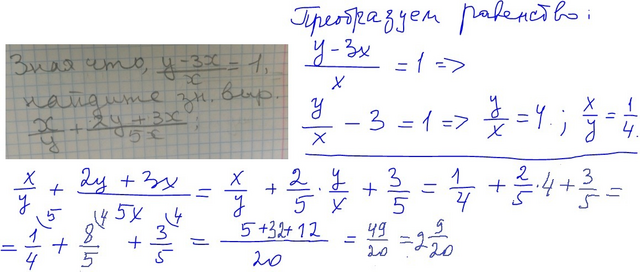 Зная что, (y-3x)/x = 1,
найдите зн. выр.
x/y + (2y+3x)/5x;
Преобразуем равенство:
(y-3x)/x = 1 =>
y/x - 3 = 1 => y/x = 4.; x/y = 1/4.
x/y + (2y+3x)/5x = x/y + 2/5 · y/x + 3/5 = 1/4 + 2/5 · 4 + 3/5 =
= 1/4 \5 + 8/5 \4 + 3/5 \4 = (5+32+12)/20 = 49/20 = 2 9/20